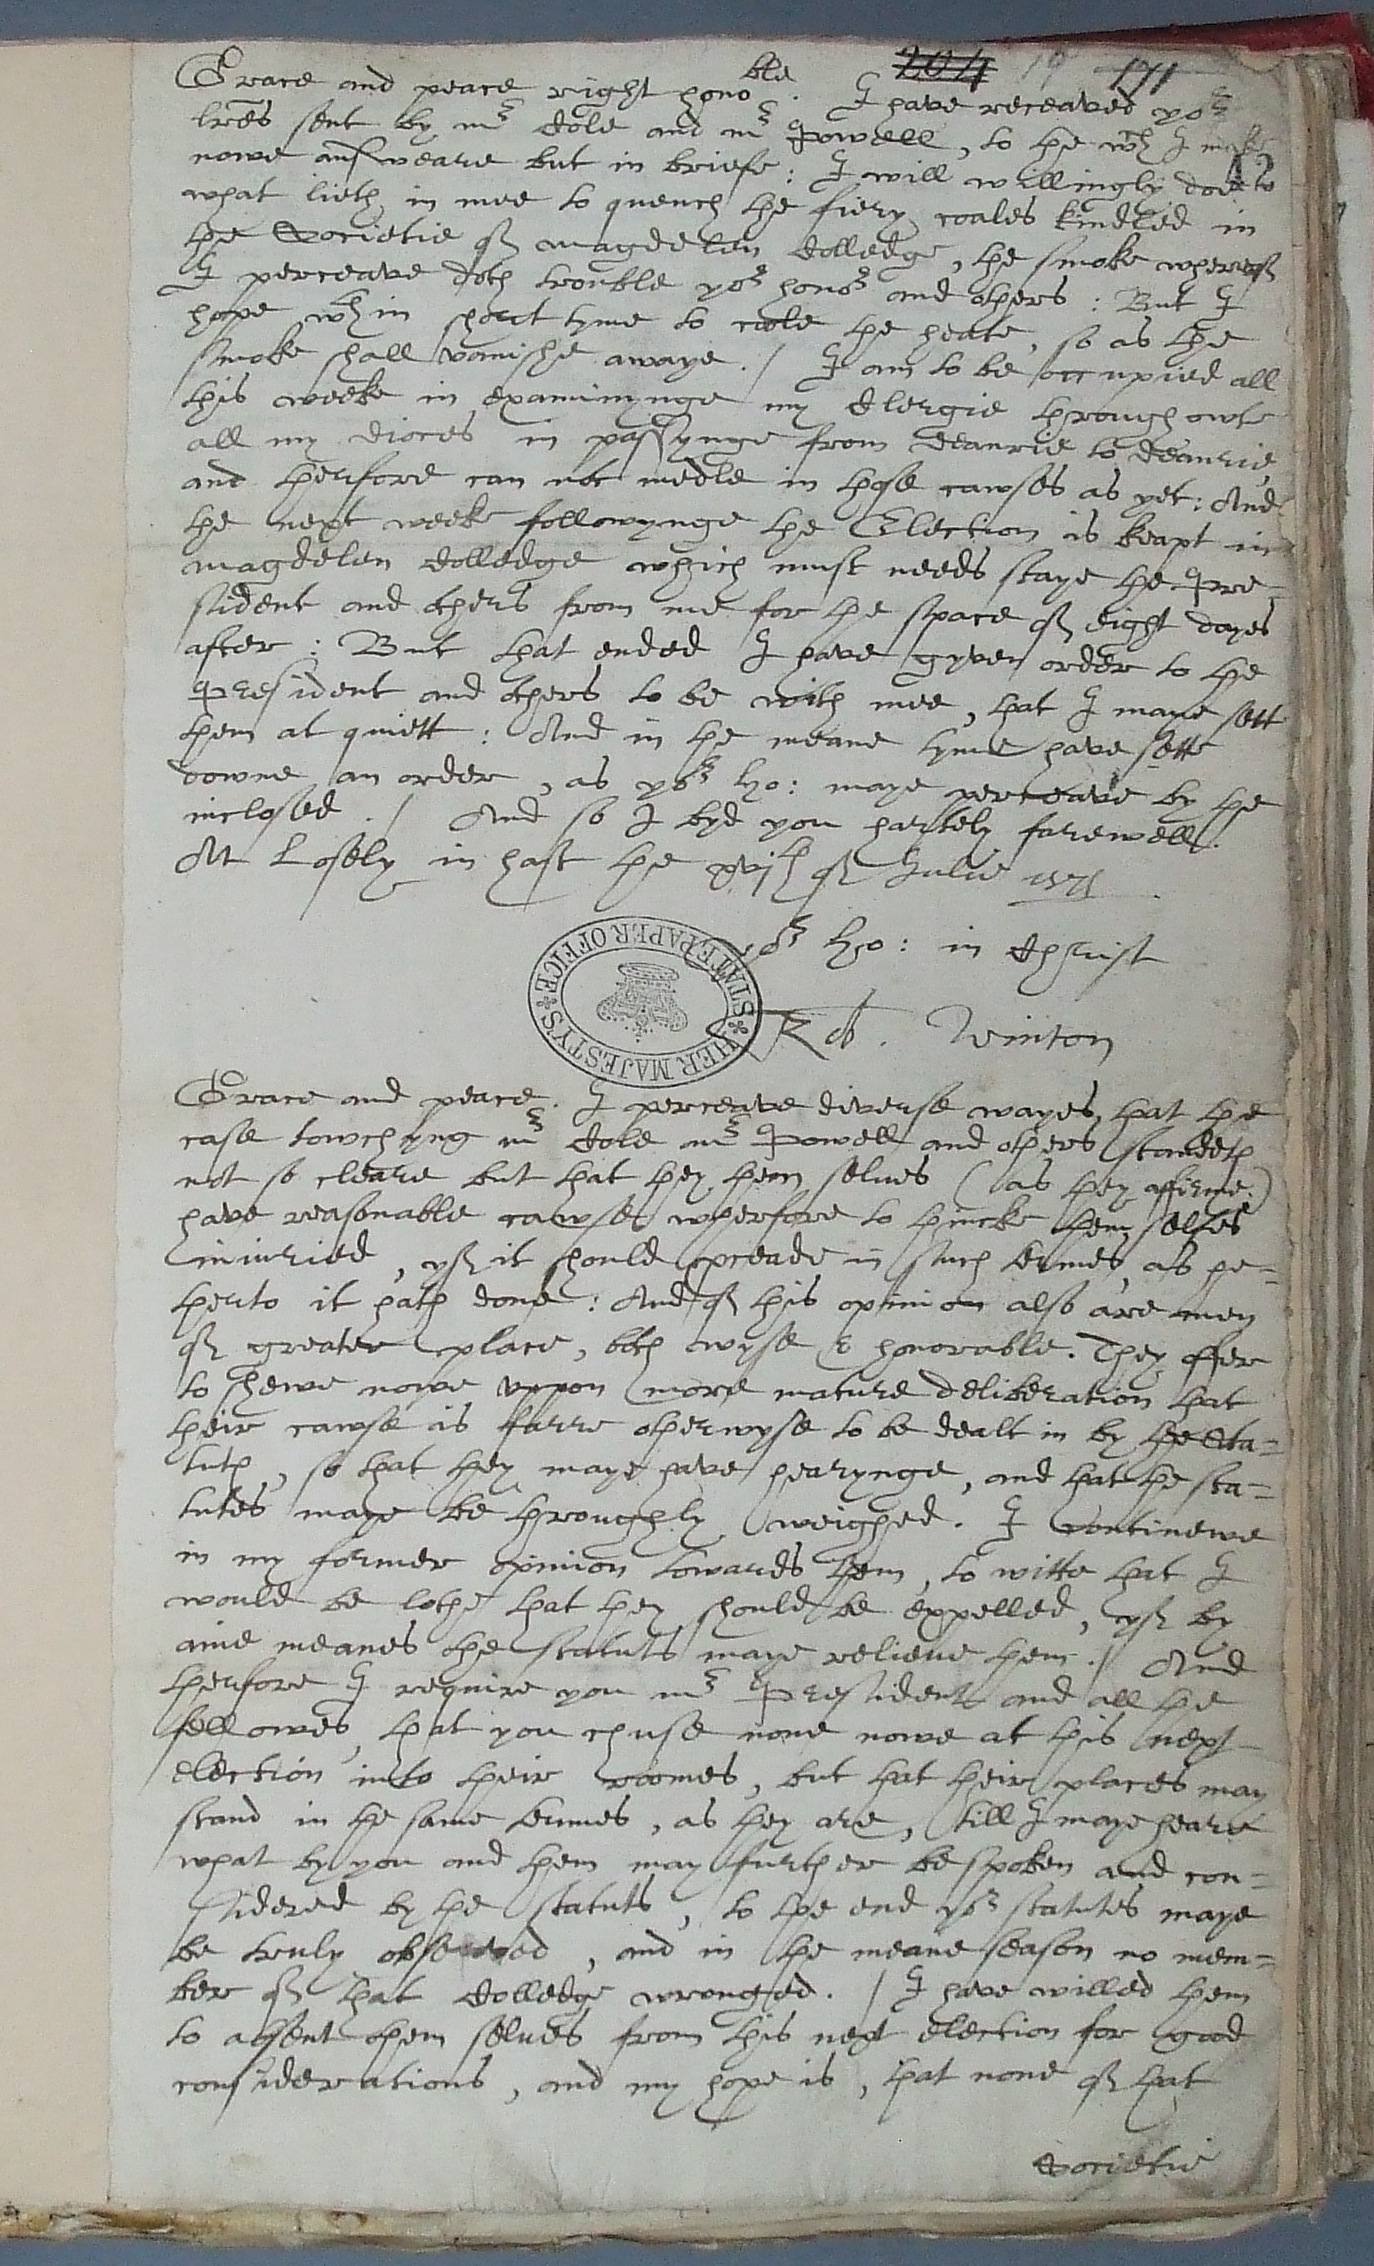 204 19 171
Grace and peace right honoble. I have receaved yor
lres sent by mr Cole and mr Powell, to the wch I make
nowe answeare but in briefe: I will willingly doe to
what lieth in mee to quench the fiery coales kindled in
the Societie of Magdelen Colledge, the smoke wherof
I perceave doth trouble yor honor and others: But I
hope wthin short tyme to coole the heate, so as the
smoke shall vanishe awaye. / I am to be occupied all
this weeke in examinynge my Clergie throughowte
all my dioces in passynge from deanrie to deanrie,
and therfore can not medle in those cawses as yet: And
the next weeke followynge the Election is keapt in
Magdelen Colledge which must needs staye the Pre-
sident and others from me for the space of eight dayes
after: But that ended I have gyven order to the
President and others to be with mee, that I maye sett
them at quiett: And in the meane tyme have sette
downe an order, as yor ho: maye perceave by the
inclosed. / And so I byd you hartely farewell.
At Losely in hast the xvijth of Julie 1575
yor ho: in Christ
Rob. Winton
HER MAJESTY'S STATE PAPER OFFICE
Grace and peace. I perceave diverse wayes, that the
case towchyng mr Cole mr Powell and others standeth
not so cleare but that they them selves (as they affirme)
have reasonable cawses wherfore to thincke them selves
iniuried, yf it should procede in such termes, as he-
therto it hath done: And of this opinion also are men
of greater place, both wyse & honorable. They offer
to shewe nowe uppon more mature deliberation that
their cawse is farre otherwyse to be dealt in by the Sta-
tuts, so that they maye have hearynge, and that the sta-
tutes maye be throughly weighed. I continewe
in my former opinion towards them, to witte that I
would be lothe that they should be expelled, yf by
anie meanes the statuts maye relieve them. / And
therfore I require you mr President and all the
fellowes, that you chuse none nowe at this next
election into their roomes, but that their places may
stand in the same termes, as they are, till I maye heare
what by you and them may further be spoken and con-
sidered by the statuts, to the end yor statutes maye
be truly observed, and in the meane season no mem-
ber of that Colledge wronged. / I have willed them
to absent them selves from this next election for good
considerations, and my hope is, that none of that
Societie